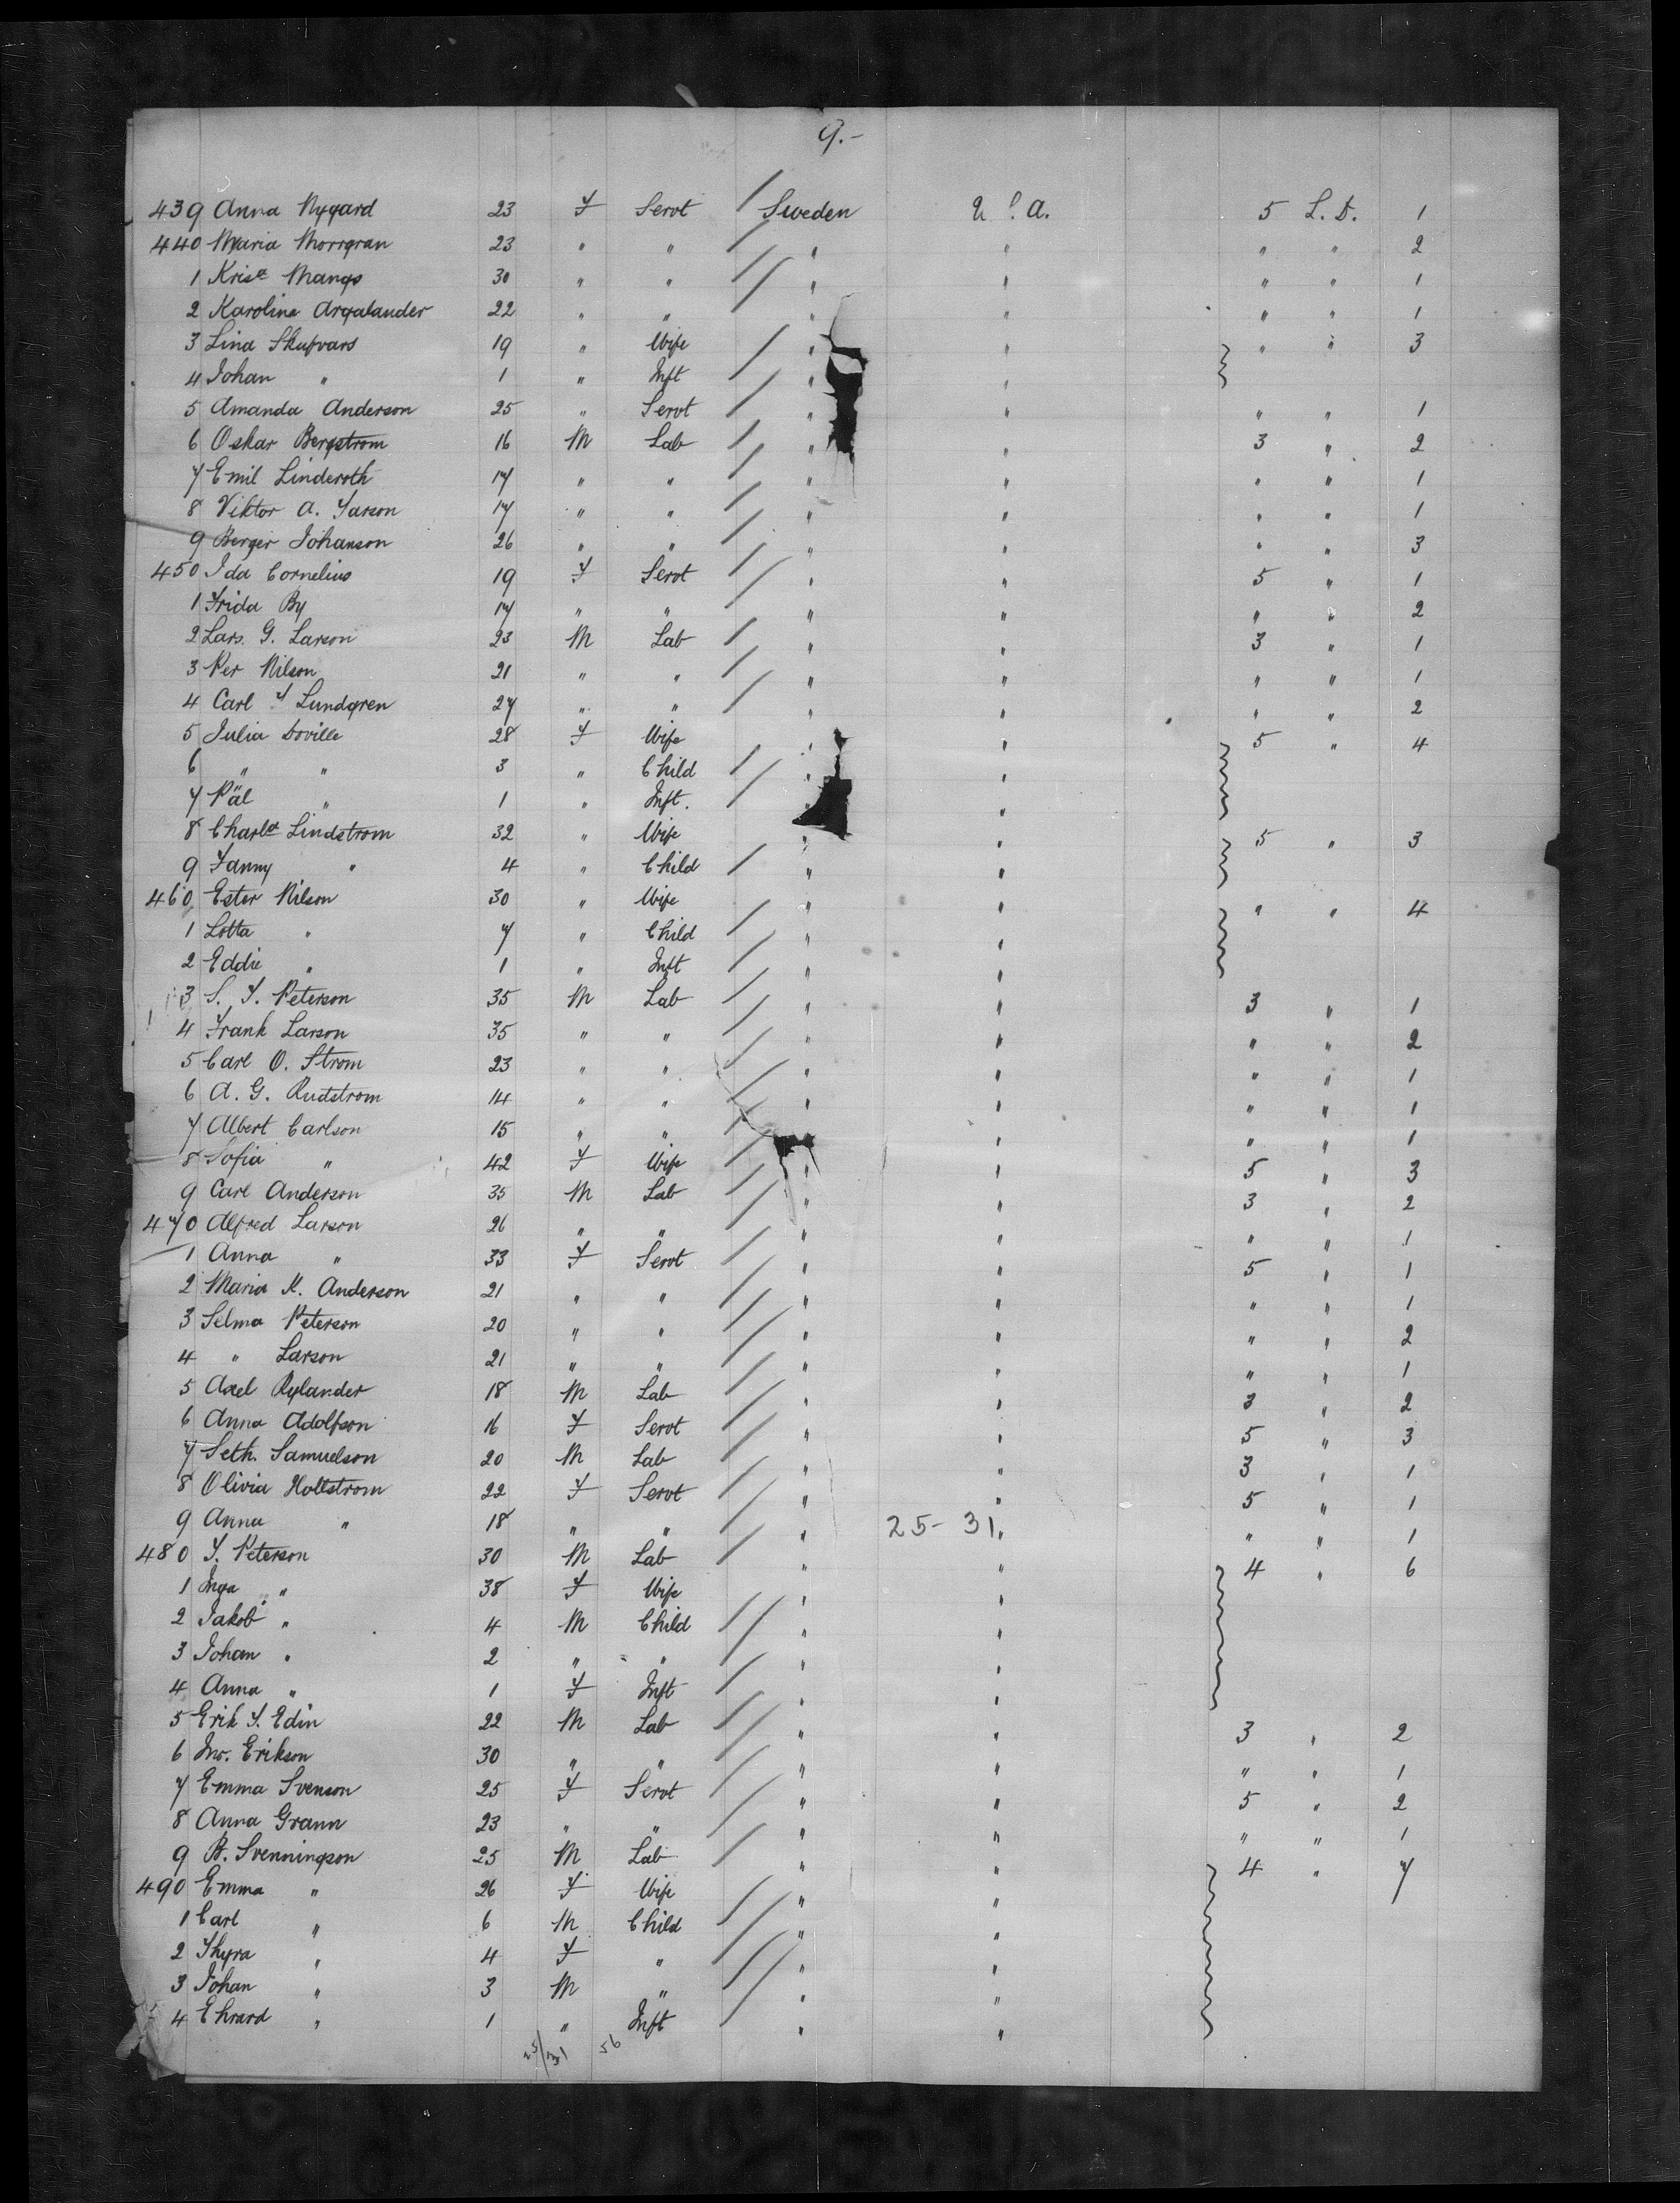 9.-
439 Anna Nygard 23 F Servt Sweden U.S.A. 5 L.D. 1
440 Maria Morrgran 23 " " " " " " 2
1 Krisa Mangs 30 " " " " " " 1
2 Karolina Argalander 22 " " " " " " 1
3 Lina Skufvars 19 " Wife " " " " 3
4 Johan " 1 " Inft " "
5 Amanda Anderson 25 " Servt " " " " 1
6 Oskar Bergstrom 16 M Lab " " 3 " 2
7 Emil Linderoth 17 " " " " " " 1
8 Viktor A. Farson 17 " " " " " " 1
9 Berger Johanson 26 " " " " " " 3
450 Ida Cornelius 19 F Servt " " 5 " 1
1 Frida By 17 " " " " " " 2
2 Lars. G. Larson 23 M Lab " " 3 " 1
3 Per Nilson 21 " " " " " " 1
4 Carl F Lundgren 27 " " " " " " 2
5 Julia Doville 28 F Wife " " 5 " 4
6 " " 3 " Child " "
7 Päl " 1 " Inft. " "
8 Charla Lindstrom 32 " Wife " " 5 " 3
9 Fanny " 4 " Child " "
460 Ester Nilson 30 " Wife " " " " 4
1 Lotta " 7 " Child " "
2 Eddie " 1 " Inft " "
3 S. F. Peterson 35 M Lab " " 3 " 1
4 Frank Larson 35 " " " " " " 2
5 Carl O. Strom 23 " " " " " " 1
6 A. G. Rudstrom 14 " " " " " " 1
7 Albert Carlson 15 " " " " " " 1
8 Sofia " 42 F Wife " " 5 " 3
9 Carl Anderson 35 M Lab " " 3 " 2
470 Alfred Larson 26 " " " " " " 1
1 Anna " 33 F Servt " " 5 " 1
2 Maria K. Anderson 21 " " " " " " 1
3 Selma Peterson 20 " " " " " " 2
4 " Larson 21 " " " " " " 1
5 Axel Rylander 18 M Lab " " 3 " 2
6 Anna Adolfson 16 F Servt " " 5 " 3
7 Seth. Samuelson 20 M Lab " " 3 " 1
8 Olivia Hollstrom 22 F Servt " " 5 " 1
9 Anna " 18 " " " 25-31 " " " 1
480 F. Peterson 30 M Lab " " 4 " 6
1 Inga " 38 F Wife " "
2 Jakob " 4 M Child " "
3 Johan " 2 " " " "
4 Anna " 1 F Inft " "
5 Erik F. Edin 22 M Lab " " 3 " 2
6 Jno. Erikson 30 " " " " " " 1
7 Emma Svenson 25 F Servt " " 5 " 2
8 Anna Grann 23 " " " " " " 1
9 B. Svenningson 25 M Lab " " 4 " 7
490 Emma " 26 F Wife " "
1 Carl " 6 M Child " "
2 Thyra " 4 F " " "
3 Johan " 3 M " " "
4 Ehrard " 1 " Inft " "
25/31 56